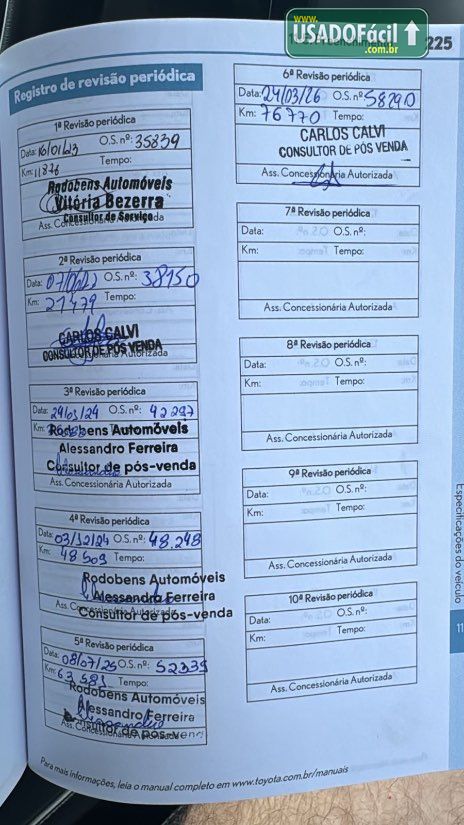 www.
USADOFácil
.com.br
225
Registro de revisão periódica
1ª Revisão periódica
Data: 16/01/23 O.S. nº: 35839
Km: 11876 Tempo:
Rodobens Automóveis
Vitória Bezerra
Consultor de Serviço
Ass. Concessionária Autorizada
2ª Revisão periódica
Data: O.S. nº: 38150
Km: 21479 Tempo:
CARLOS CALVI
CONSULTOR DE PÓS VENDA
Autorizada
3ª Revisão periódica
Data: 29/03/24 O.S. nº: 42297
Km:
Rodobens Automóveis
Alessandro Ferreira
Consultor de pós-venda
Ass. Concessionária Autorizada
4ª Revisão periódica
Data: 03/12/24 O.S. nº: 48.248
Km: 48509 Tempo:
Rodobens Automóveis
Alessandro Ferreira
Consultor de pós-venda
Ass. Concessionária Autorizada
5ª Revisão periódica
Data: 08/07/25 O.S. nº: 52339
Km: 63583 Tempo:
Rodobens Automóveis
Alessandro Ferreira
Consultor de pós-venda
Ass. Concessionária Autorizada
6ª Revisão periódica
Data: 24/03/26 O.S. nº: 58290
Km: 76770
CARLOS CALVI
CONSULTOR DE PÓS VENDA
Ass. Concessionária Autorizada
7ª Revisão periódica
Data: O.S. nº:
Km: Tempo:
Ass. Concessionária Autorizada
8ª Revisão periódica
Data: O.S. nº:
Km: Tempo:
Ass. Concessionária Autorizada
9ª Revisão periódica
Data: O.S. nº:
Km: Tempo:
Ass. Concessionária Autorizada
10ª Revisão periódica
Data: O.S. nº:
Km: Tempo:
Ass. Concessionária Autorizada
Especificações do veículo
11
Para mais informações, leia o manual completo em www.toyota.com.br/manuais